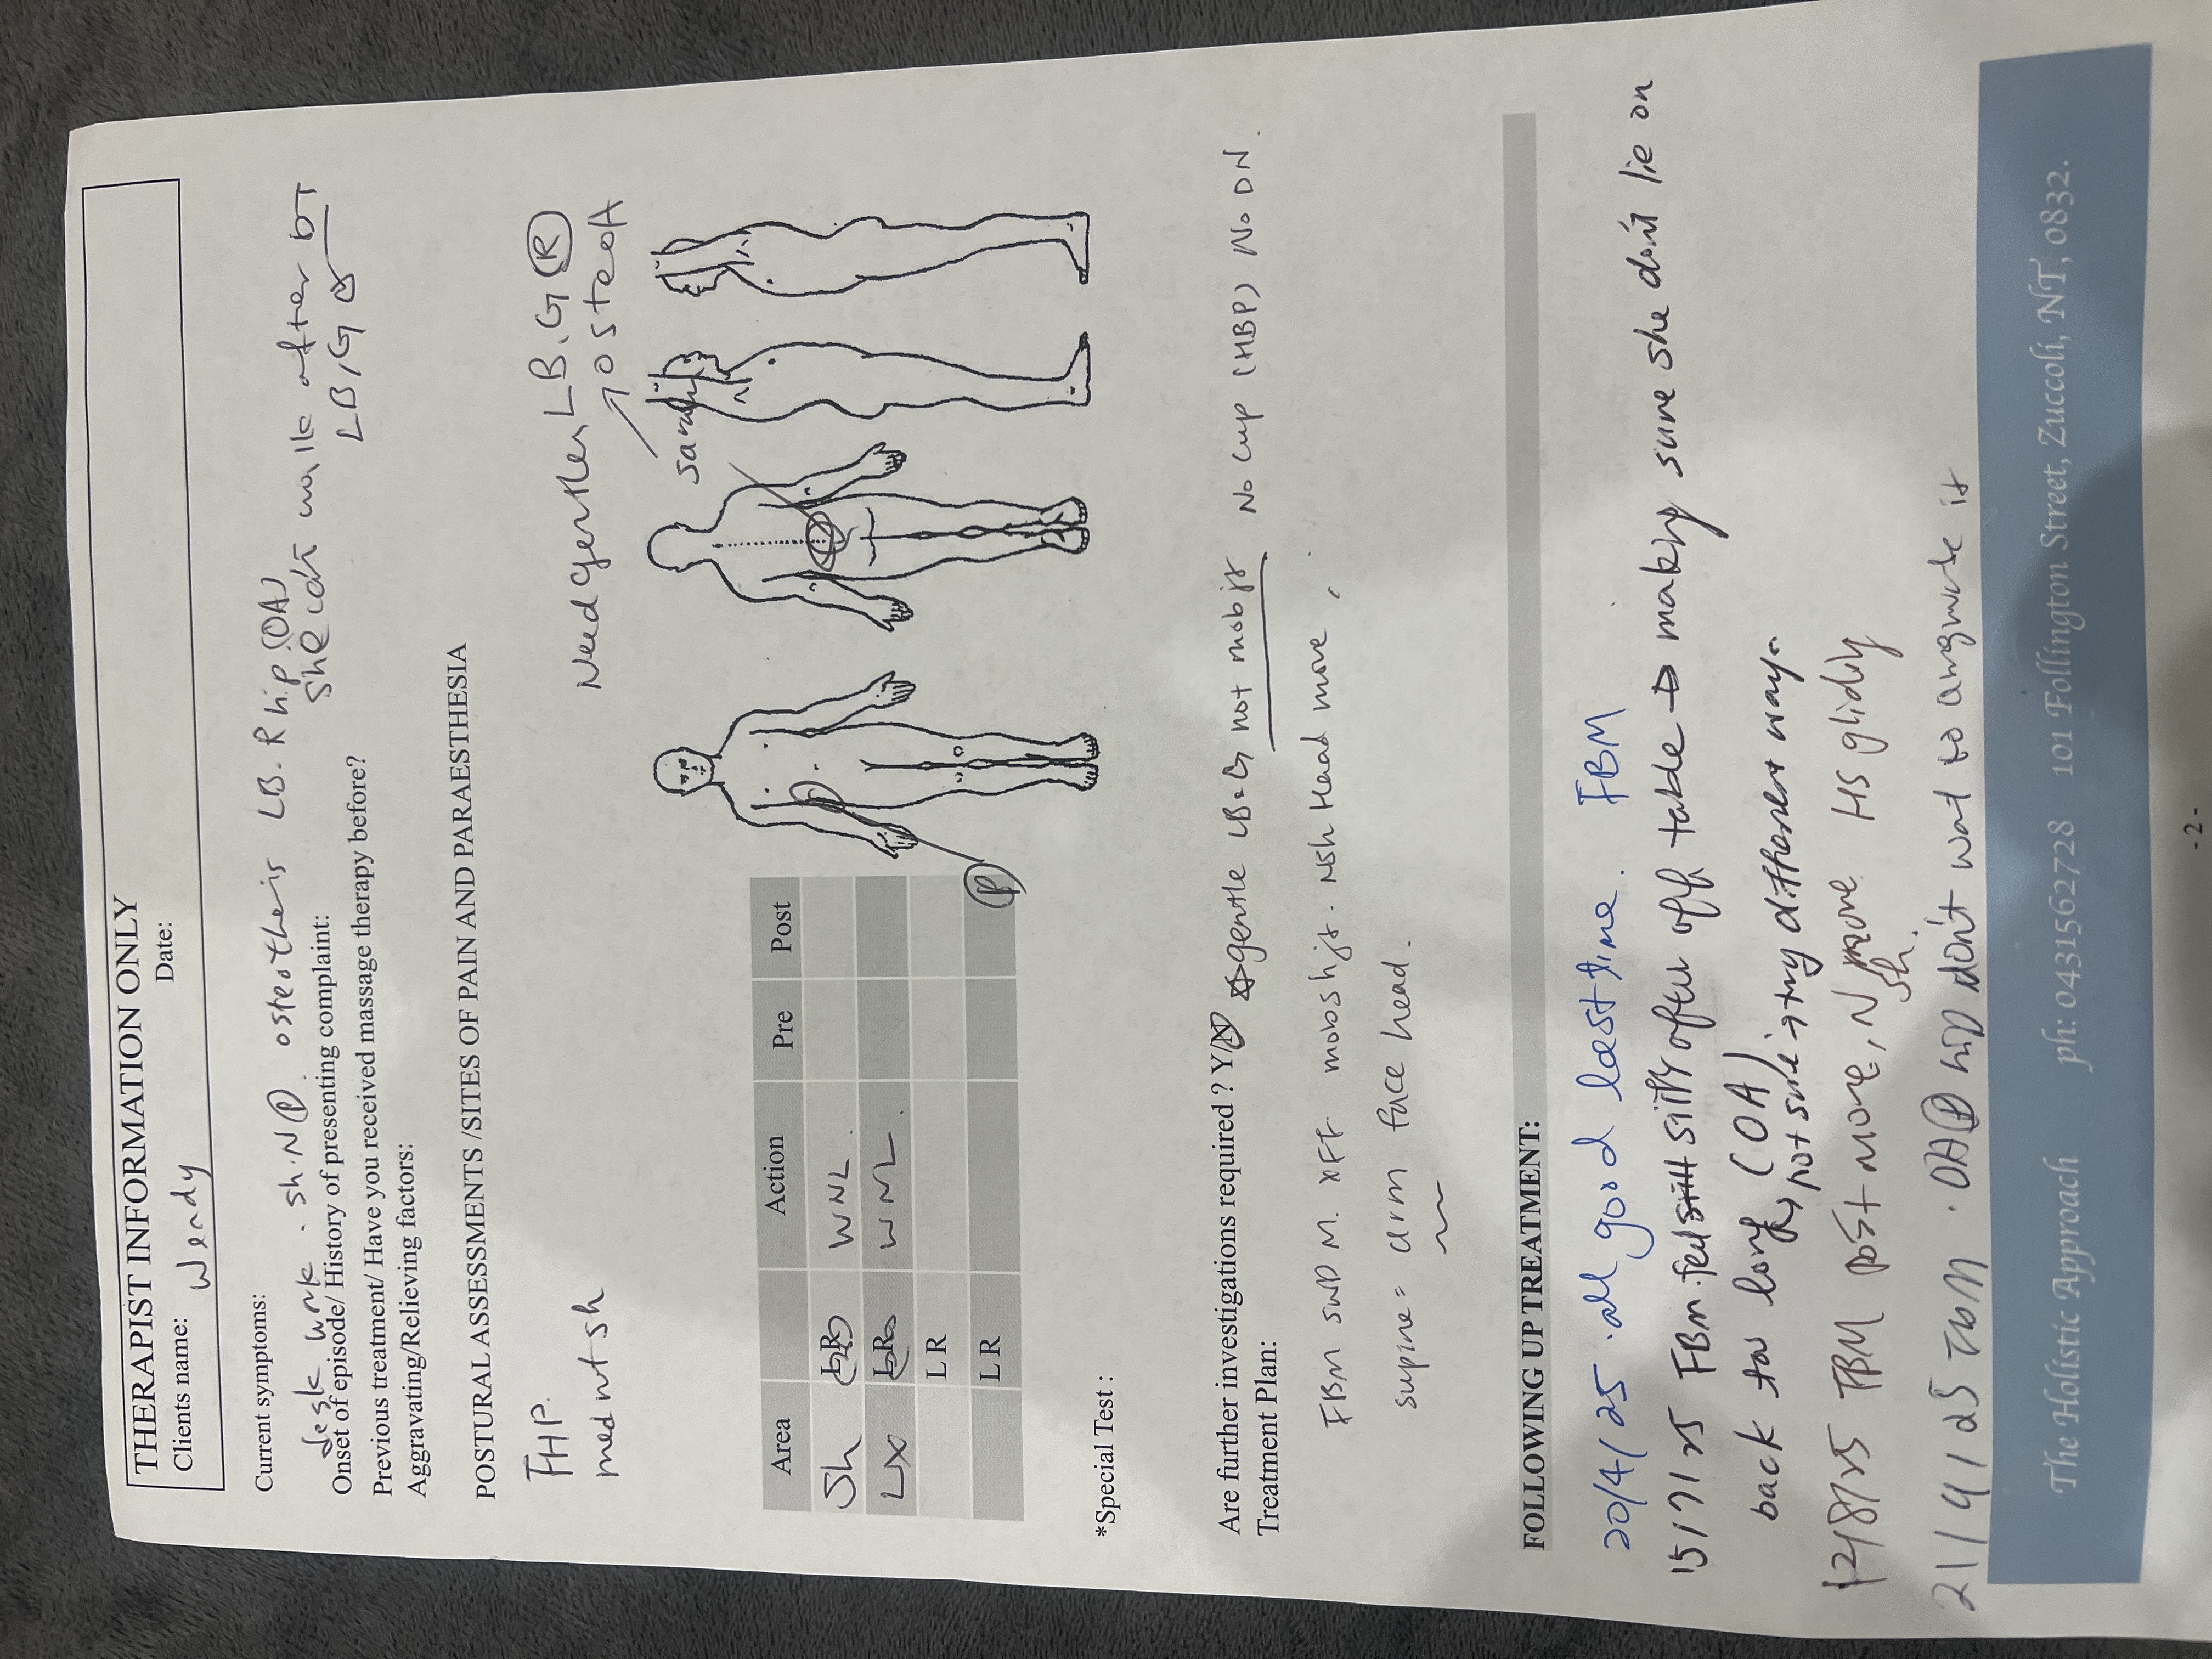 THERAPIST INFORMATION ONLY
Clients name: Wendy Date:
Current symptoms:
desk work. sh. N (P). osteotheis LB. R hip (OA)
she can't walk after DT
LB, G
Onset of episode/ History of presenting complaint:
Previous treatment/ Have you received massage therapy before?
Aggravating/Relieving factors:
POSTURAL ASSESSMENTS /SITES OF PAIN AND PARAESTHESIA
FHP.
med rot sh
Need gentler LB. G (R)
→ osteoA
Area Action Pre Post
Sh LR WNL.
Lx LR WNL.
L R
L R
(P)
*Special Test :
Are further investigations required ? Y/N
Treatment Plan:
gentle LB. G not mobjt No cup (HBP) No DN.
FBM SWD M. XFF mobs hjt. Nsh Head more,
supine= arm face head.
FOLLOWING UP TREATMENT:
20/4/25. all good last time. FBM
15/7/25 FBM. feel still stiff after off table → making sure she don't lie on
back too long, (OA)
not sure → try different way.
12/8/25 FBM post more, N more HS gliding
sh.
21/9/25 TBM. OA (P) hip don't want to
The Holistic Approach ph: 0431562728 101 Follington Street, Zuccoli, NT, 0832.
- 2 -